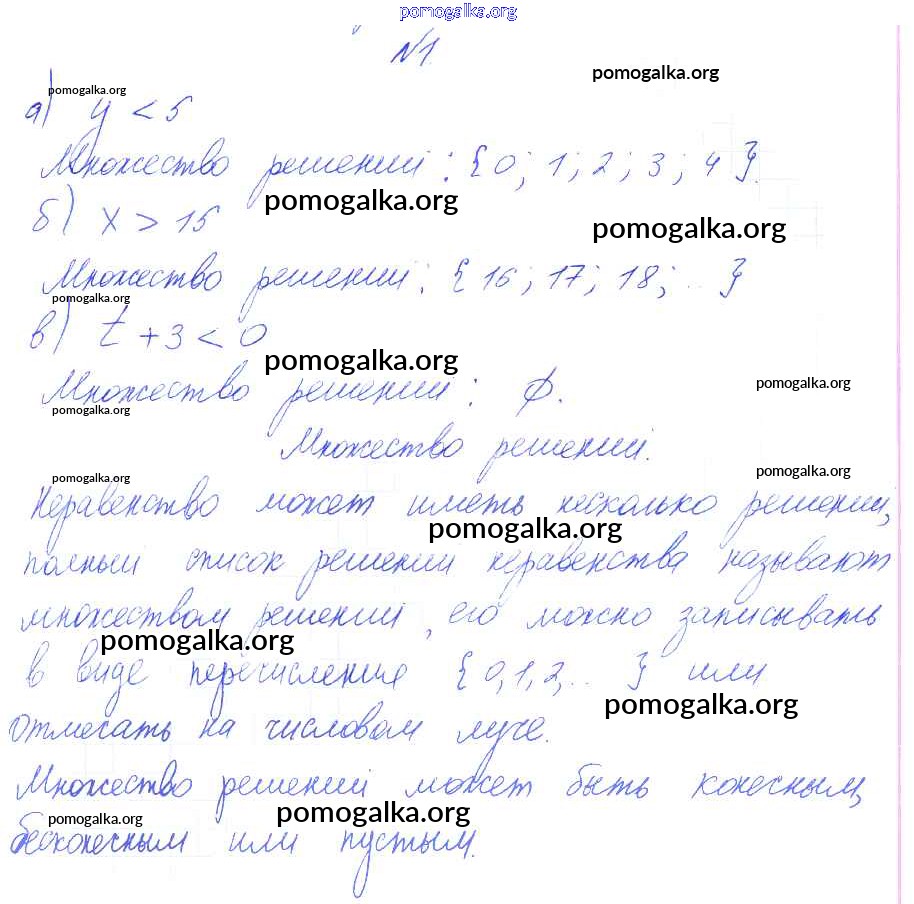 pomogalka.org
№1.
pomogalka.org
pomogalka.org
а) y < 5
Множество решений : {0; 1; 2; 3; 4}.
pomogalka.org
б) x > 15
pomogalka.org
Множество решений : {16; 17; 18; ...}
pomogalka.org
в) t + 3 < 0
pomogalka.org
pomogalka.org
Множество решений : ø.
pomogalka.org
Множество решений.
pomogalka.org
pomogalka.org
Неравенство может иметь несколько решений,
pomogalka.org
полный список решений неравенства называют
множеством решений, его можно записывать
pomogalka.org
в виде перечисления {0,1,2,... } или
pomogalka.org
отмечать на числовом луче.
Множество решений может быть конечным,
pomogalka.org
pomogalka.org
бесконечным или пустым.